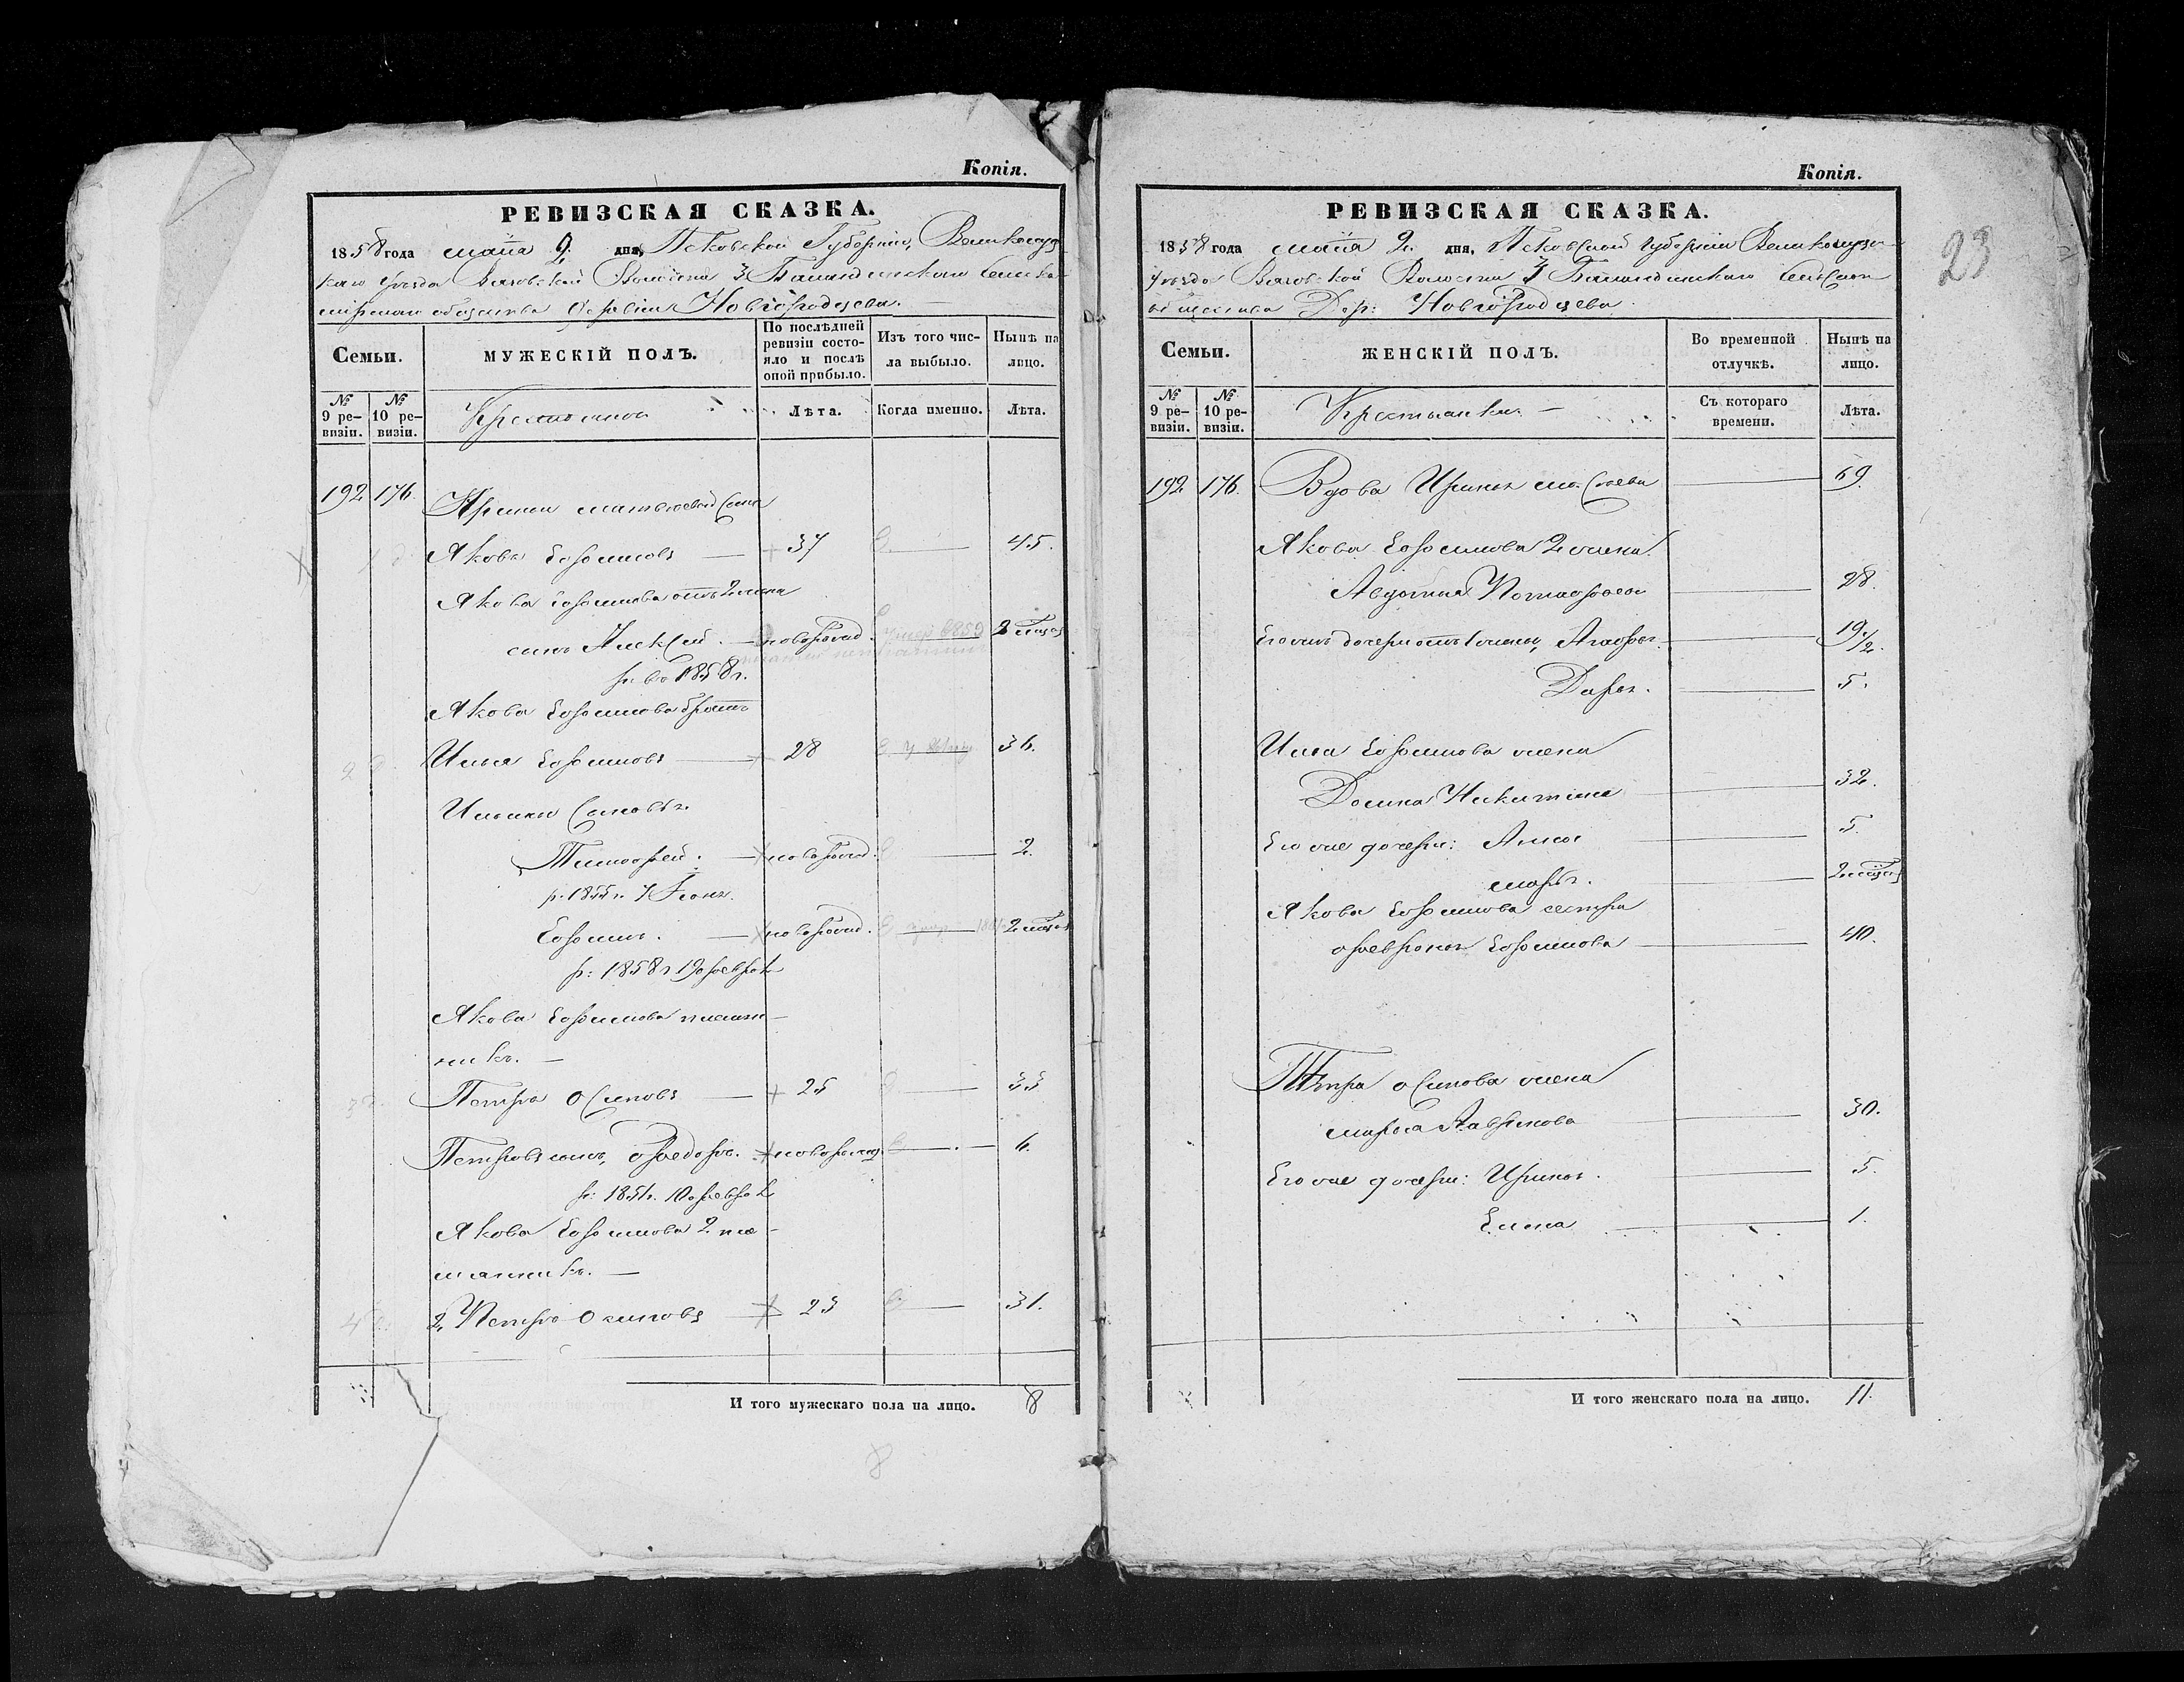 Копія.
РЕВИЗСКАЯ СКАЗКА.
1858 года маія 2. дня, Псковской Губерніи, Великолуц-
каго уѣзда Вязовской Волости 3 Баландинскаго сельска-
мірскаго общества Деревни Новгородцева.
Семьи.
МУЖЕСКІЙ ПОЛЪ.
По послѣдней ревизіи состояло и послѣ оной прибыло.
Изъ того числа выбыло.
Нынѣ на лицо.
№ 9 ревизіи.
№ 10 ревизіи.
Крестьяне
Лѣта.
Когда именно.
Лѣта.
192 176.
Ирины Матвѣевой сынъ
Яковъ Ефимовъ — 37 — 45.
Якова Ефимова отъ 2 жены
сынъ Алексѣй. — новорожд. 2 мѣсяц
р. въ 1858 г.
Якова Ефимова братъ
Илья Ефимовъ — 28 — 36.
Ильины Сыновья
Тимофей. — новорожд. — 2.
р. 1855 г.
Ефимъ. — новорожд. — 2 мѣсяц
р: 1858 г 19 февраля
Якова Ефимова племян-
никъ. —
Петръ Осиповъ — 25 — 33
Петровъ сынъ, Федоръ. новорожд — 6.
р: 1851 г. 10 февраля
Якова Ефимова 2 пле-
мянникъ. —
2. Петръ Осиповъ — 23 — 31.
И того мужескаго пола на лицо. 8
8
Копія.
23
РЕВИЗСКАЯ СКАЗКА.
1858 года маія 2. дня, Псковской губерніи Великолуцка
уѣзда Вязовской Волости 3 Баландинскаго сельскаго
общества Дер: Новгородцева.
Семьи.
ЖЕНСКІЙ ПОЛЪ.
Во временной отлучкѣ.
Нынѣ на лицо.
№ 9 ревизіи.
№ 10 ревизіи.
Крестьянки. —
Съ котораго времени.
Лѣта.
192 176.
Вдова Ирина — 69.
Якова Ефимова 2 жена
Авдотья — 28.
Его жъ дочери отъ 1 жены, Агафья — 19 1/2.
Дарья. — 5.
Ильи Ефимова жена
Домна Никитина — 32.
Его же дочери: Анна — 5.
Марья. — 2 мѣсяц
Якова Ефимова сестра
Февронья Ефимова — 40.
Петра Осипова жена
Марья Лаврикова — 30.
Его же дочери: Ирина. — 5.
Елена — 1.
И того женскаго пола на лицо. 11.